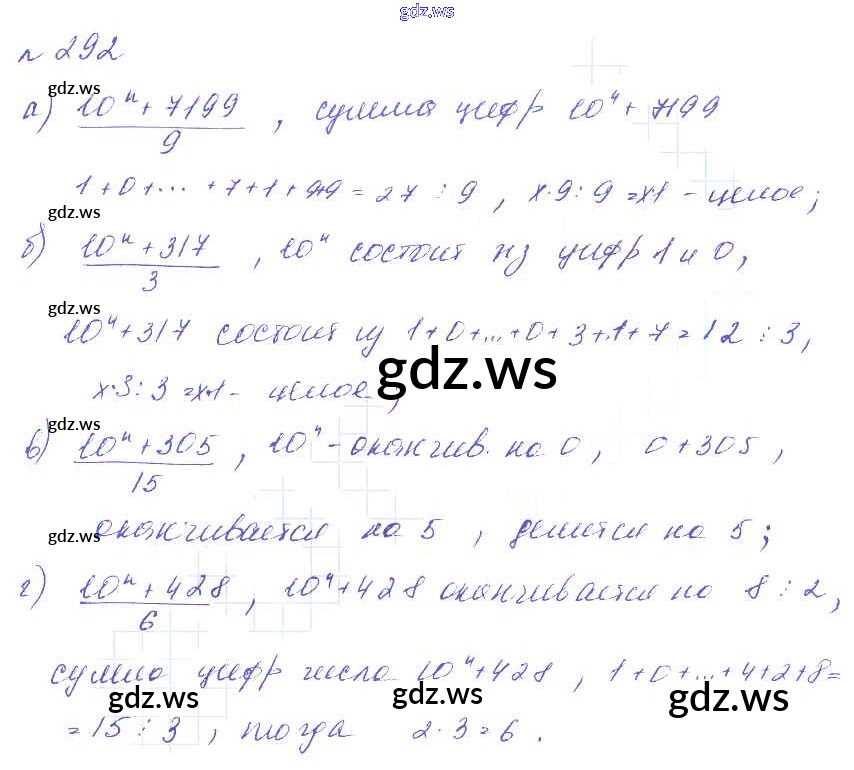 gdz.ws
n 292
gdz.ws
а) (10ⁿ + 7199)/9 , сумма цифр 10ⁿ + 7199
1 + 0 + ... + 7 + 1 + 9+9 = 27 ⋮ 9 , х·9 : 9 = х·1 - целое;
gdz.ws
б) (10ⁿ + 317)/3 , 10ⁿ состоит из цифр 1 и 0,
gdz.ws
10ⁿ + 317 состоит из 1 + 0 + ... + 0 + 3 + 1 + 7 = 12 ⋮ 3,
gdz.ws
х·3 : 3 = х·1 - целое;
gdz.ws
в) (10ⁿ + 305)/15 , 10ⁿ - оканчив. на 0, 0 + 305,
gdz.ws
оканчивается на 5 , делится на 5;
г) (10ⁿ + 428)/6 , 10ⁿ + 428 оканчивается на 8 ⋮ 2,
сумма цифр числа 10ⁿ + 428 , 1 + 0 + ... + 4 + 2 + 8 =
gdz.ws gdz.ws gdz.ws
= 15 ⋮ 3 , тогда 2 · 3 = 6 .